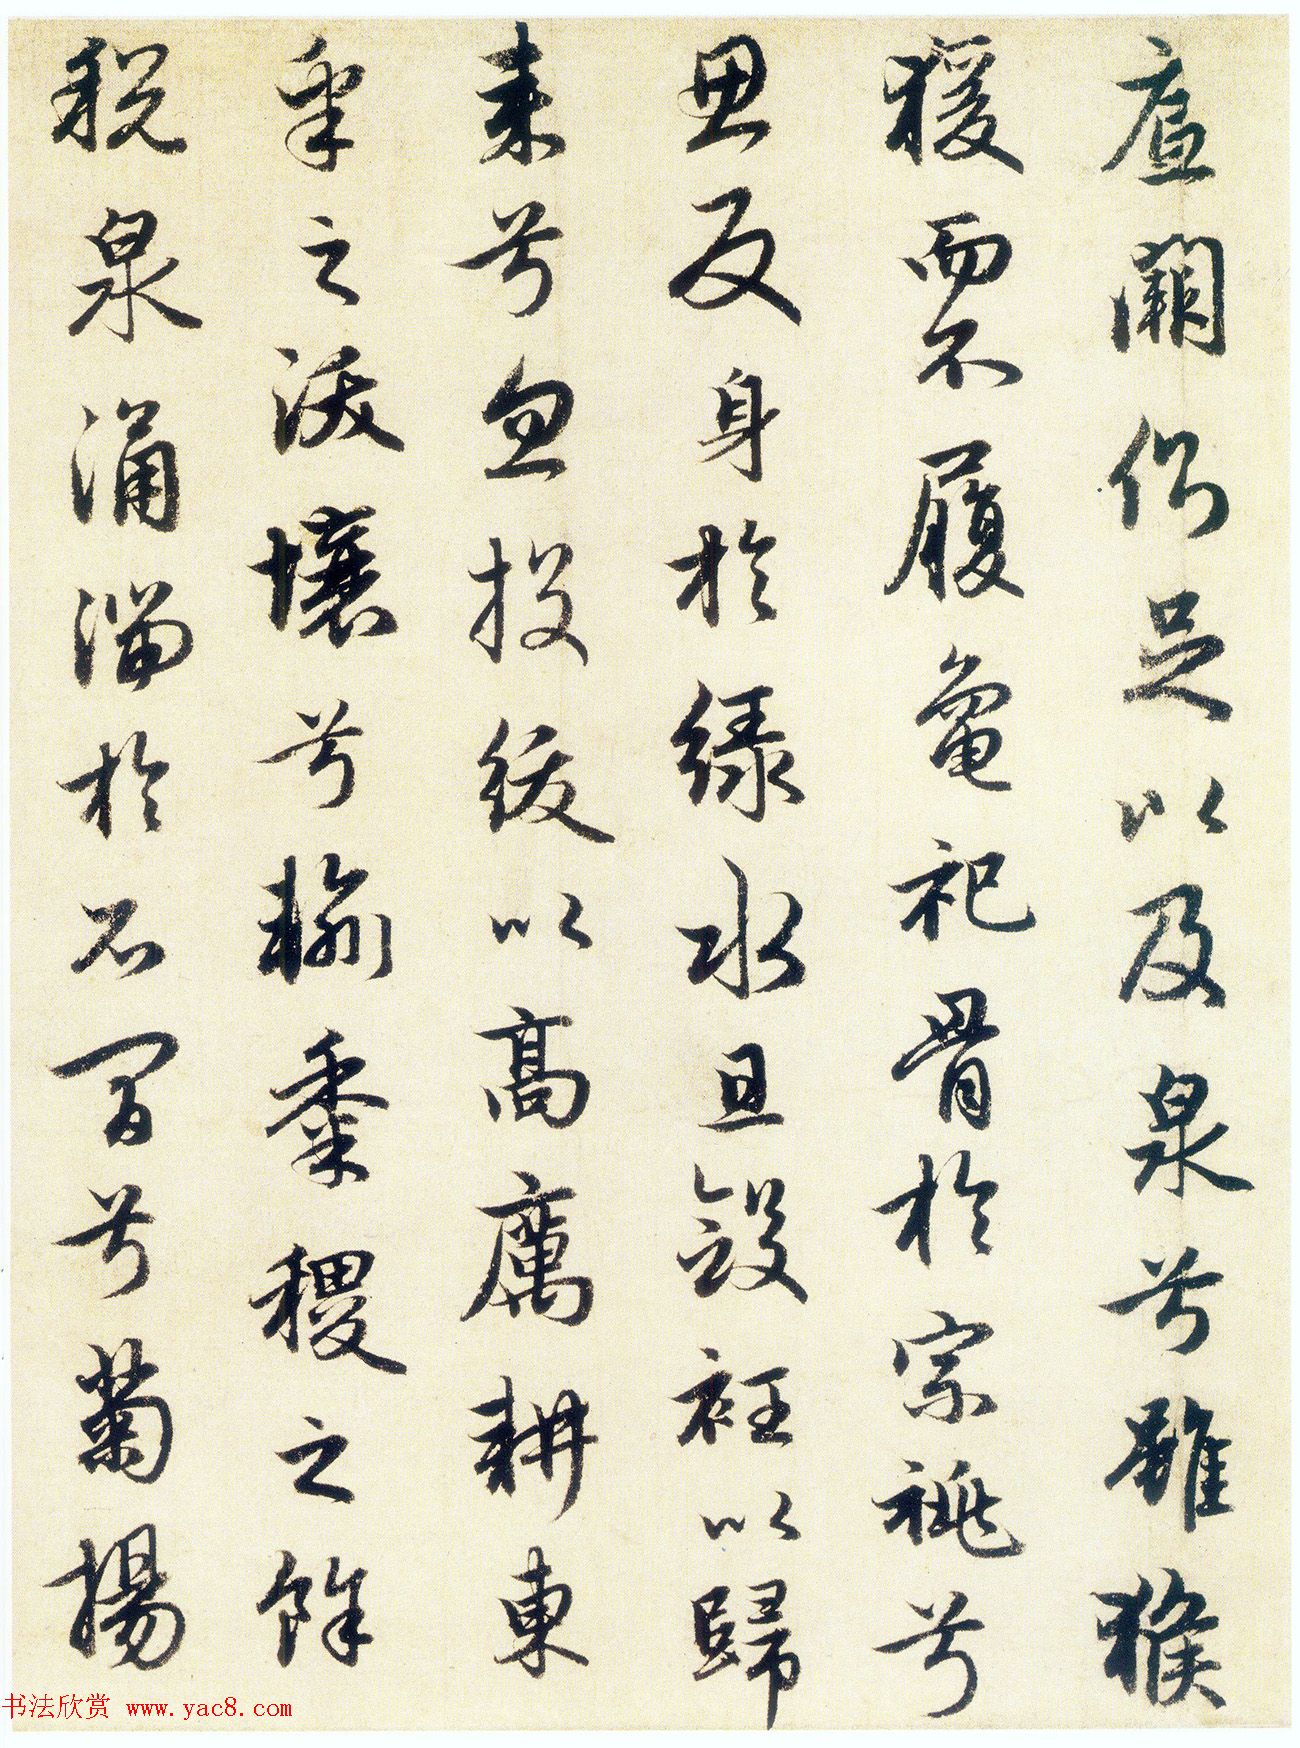 底闕側足以及泉兮雖猴
猨而不履龜祀骨於宗祧兮
思反身於緑水且斂衽以歸
来兮忽投紱以高厲耕東
皋之沃壤兮輸黍稷之餘
税泉涌湍於石間兮菊揚
书法欣赏 www.yac8.com